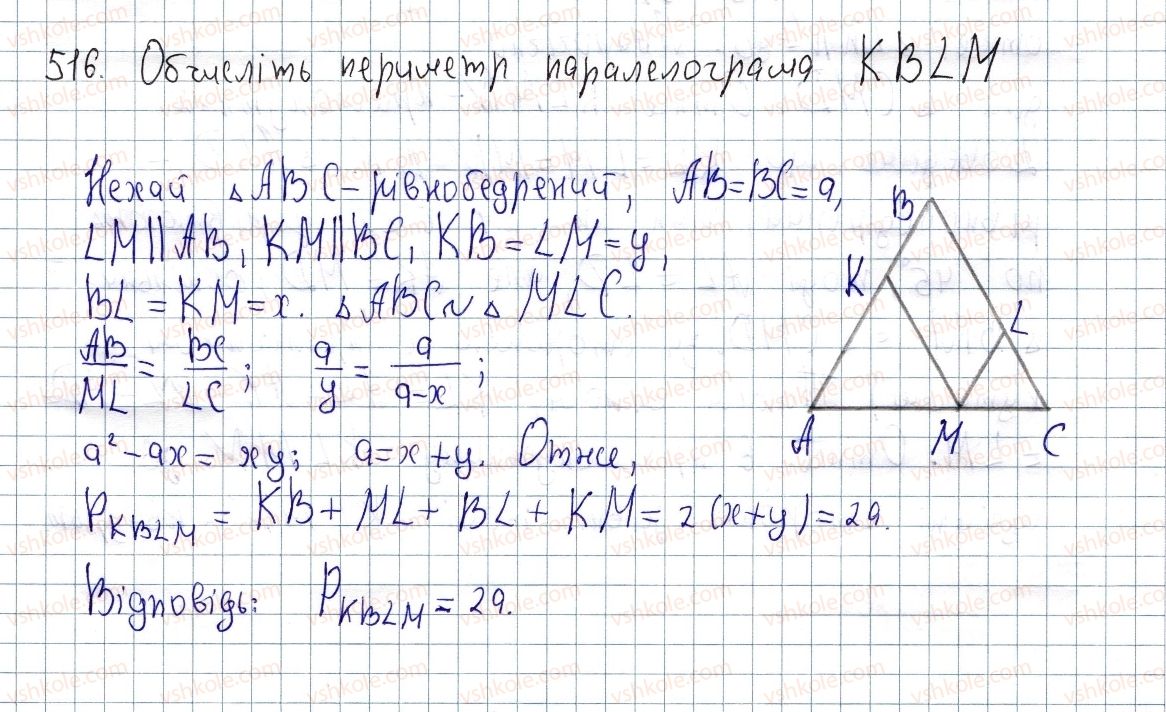 516. Обчисліть периметр паралелограма KBLM
Нехай △ABC – рівнобедрений, AB=BC=a,
LM||AB, KM||BC, KB=LM=y,
BL=KM=x. △ABC ∾ △MLC.
AB/ML = BC/LC; a/y = a/a-x;
a²-ax=xy; a=x+y. Отже,
P_KBLM = KB+ML+BL+KM=2(x+y)=2a.
Відповідь: P_KBLM = 2a.
B
K
L
A
M
C
vshkole.com